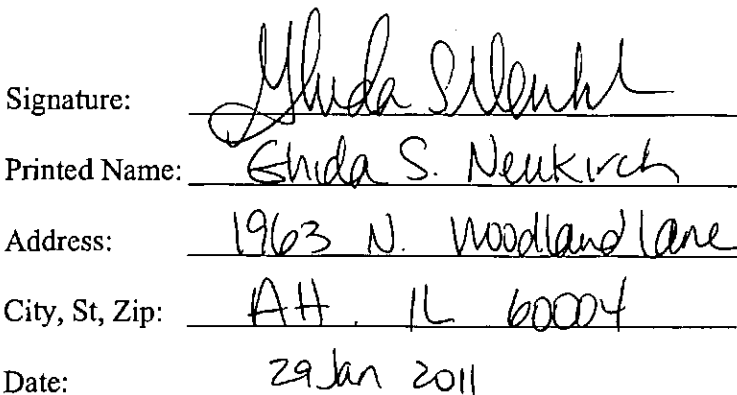 Signature: Ghida S Neukirch
Printed Name: Ghida S. Neukirch
Address: 1963 N. Woodland Lane
City, St, Zip: AH. IL 60004
Date: 29 Jan 2011